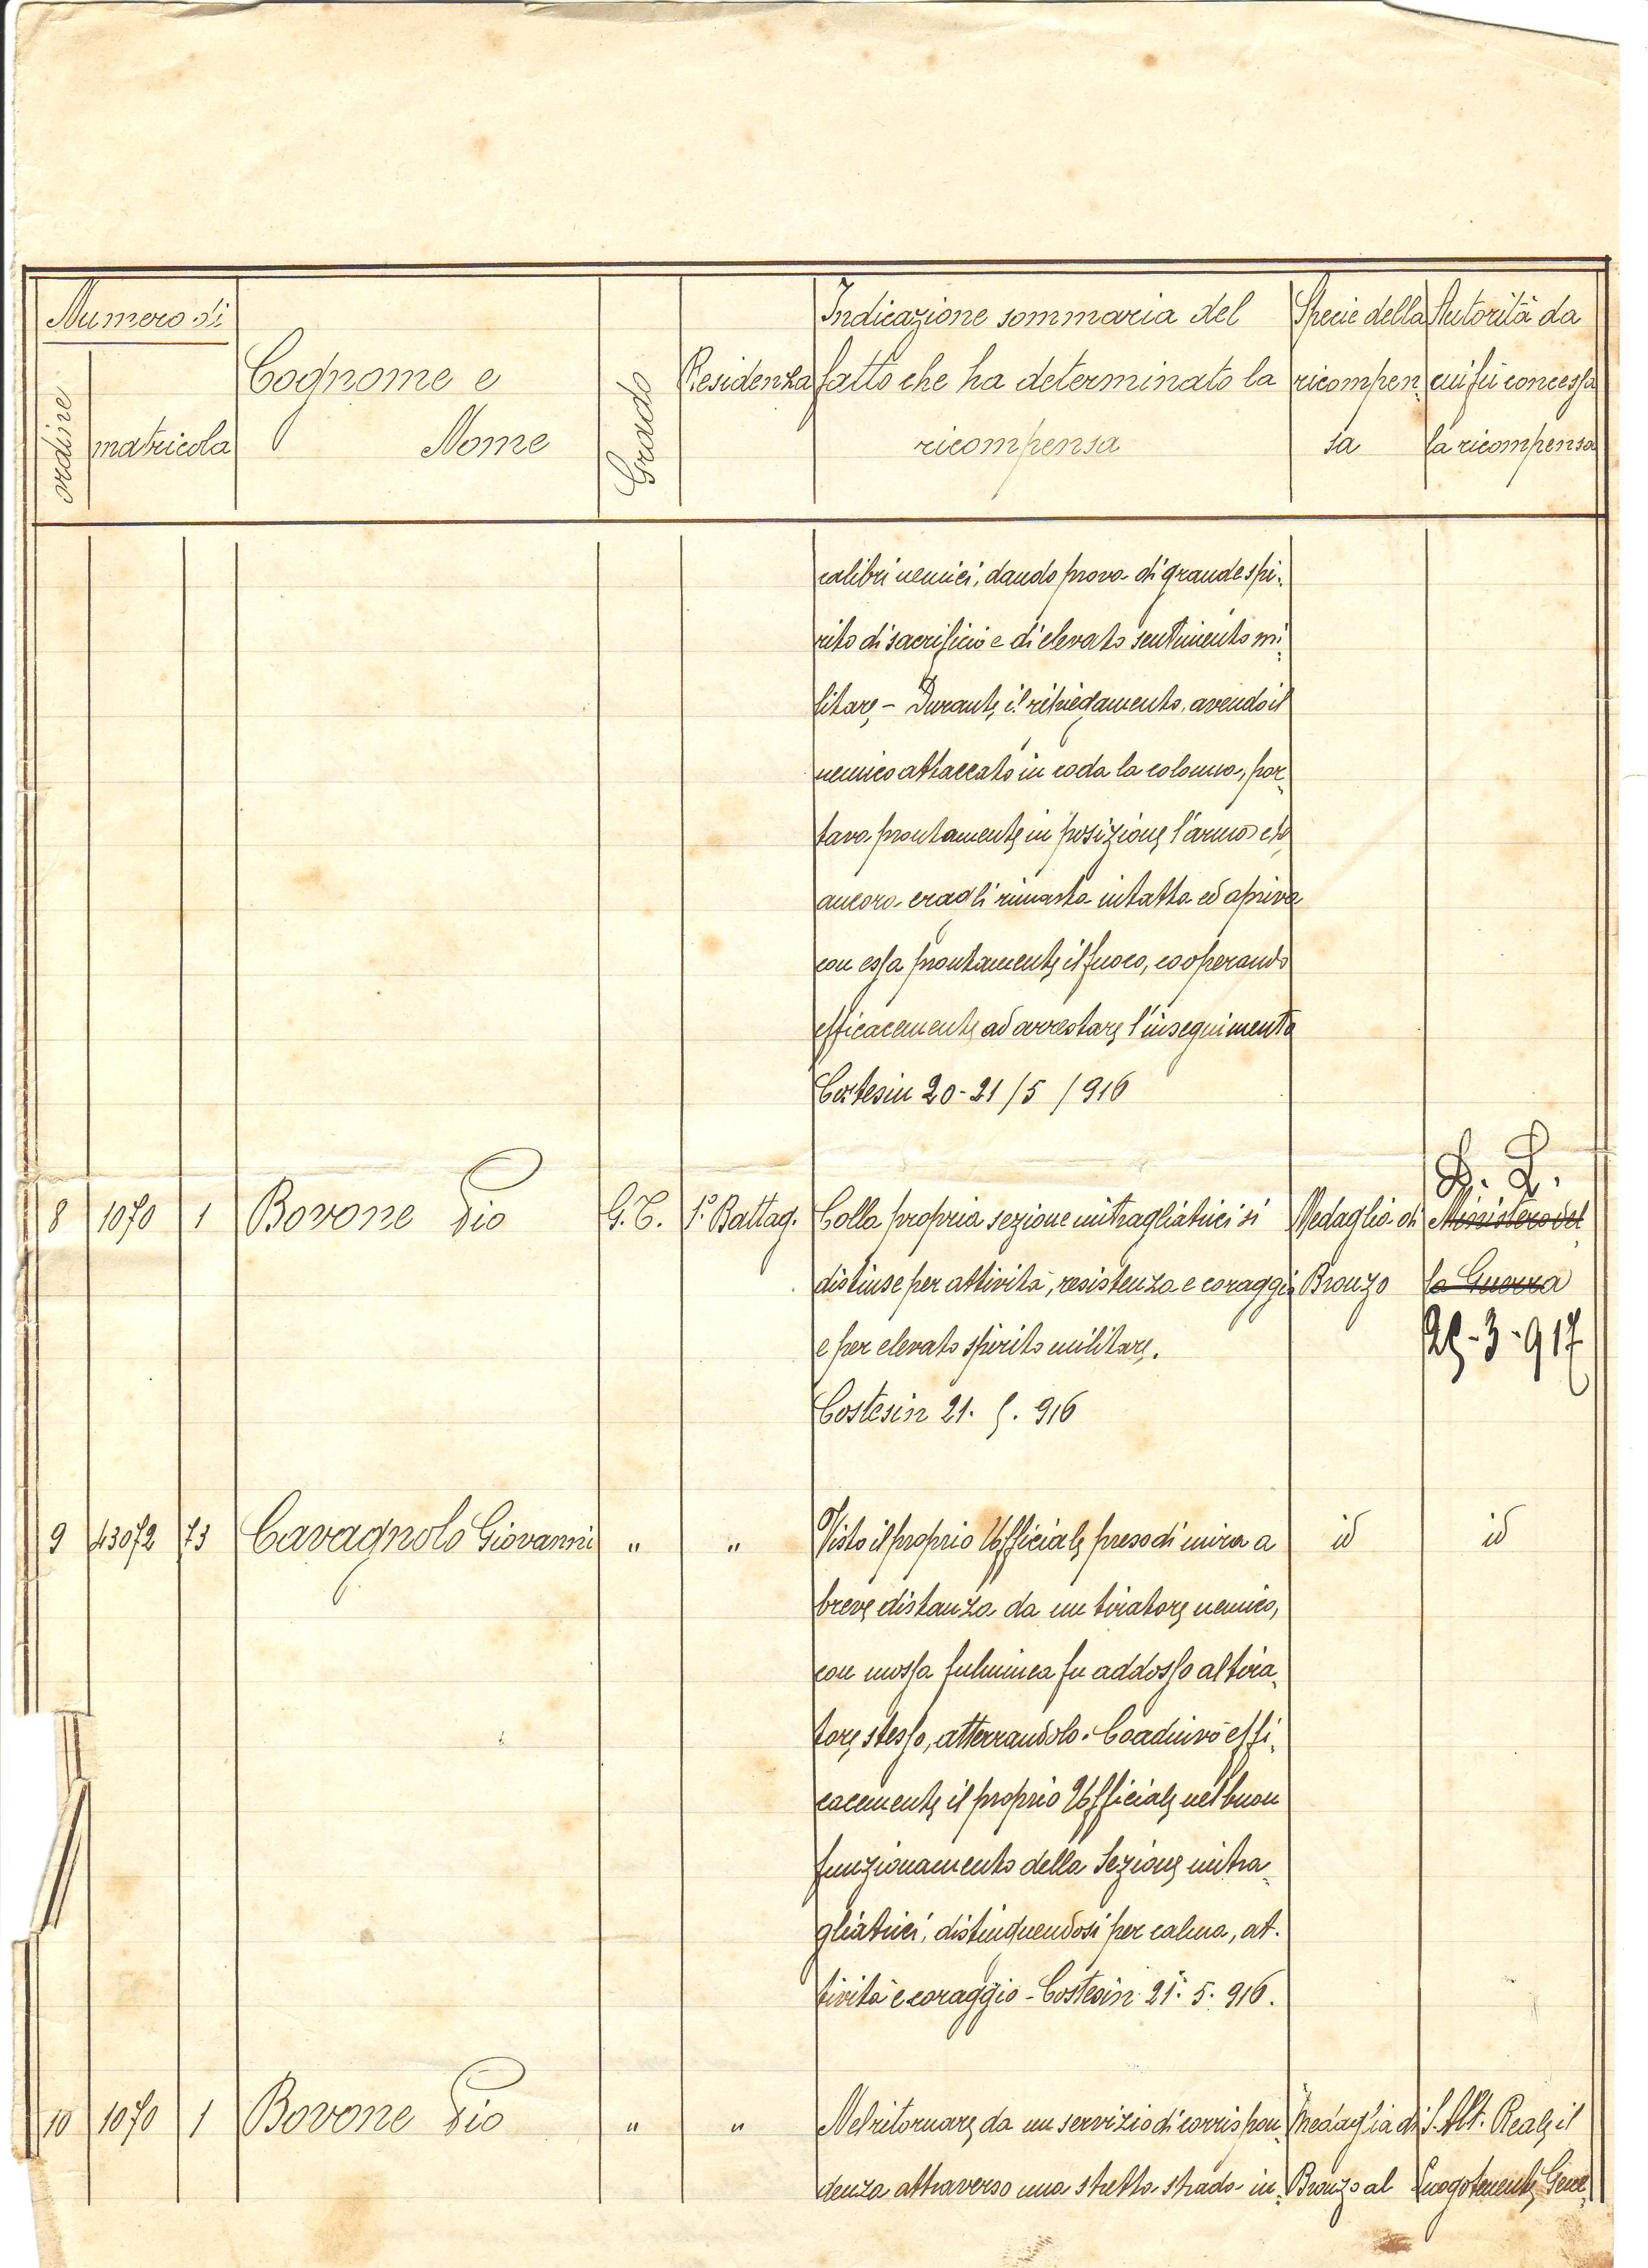 Numero di
ordine
matricola
Cognome e
Nome
Grado
Residenza
Indicazione sommaria del
fatto che ha determinato la
ricompensa
Specie della
ricompen-
sa
Autorità da
cui fù concessa
la ricompensa
calibri nemici, dando prova di grande spi-
rito di sacrificio e di elevato sentimento mi-
litare - Durante il ripiegamento, avendo il
nemico attaccato in coda la colonna, por-
tava prontamente in posizione l'arma che
ancora eragli rimasta intatta ed apriva
con essa prontamente il fuoco, cooperando
efficacemente ad arrestare l'inseguimento
Costesin 20-21/5/916
8 1070 1 Bovone Pio G.C. 1° Battag. Colla propria sezione mitragliatrici si Medaglia di D. L.
Ministero del
distinse per attività, resistenza e coraggio Bronzo la Guerra
e per elevato spirito militare. 25-3-917
Costesin 21. 5. 916
9 43072 73 Cavagnolo Giovanni " " Visto il proprio Ufficiale preso di mira a id id
breve distanza da un tiratore nemico,
con mossa fulminea fu addosso al tira-
tore stesso, atterrandolo. Coadiuvò effi-
cacemente il proprio Ufficiale nel buon
funzionamento della Sezione mitra-
gliatrici, distinguendosi per calma, at-
tività e coraggio - Costesin 21. 5. 916.
10 1070 1 Bovone Pio " " Nel ritornare da un servizio di corrispon- Medaglia di S. Alt. Reale il
denza attraverso una stretta strada in- Bronzo al Luogotenente Gene-